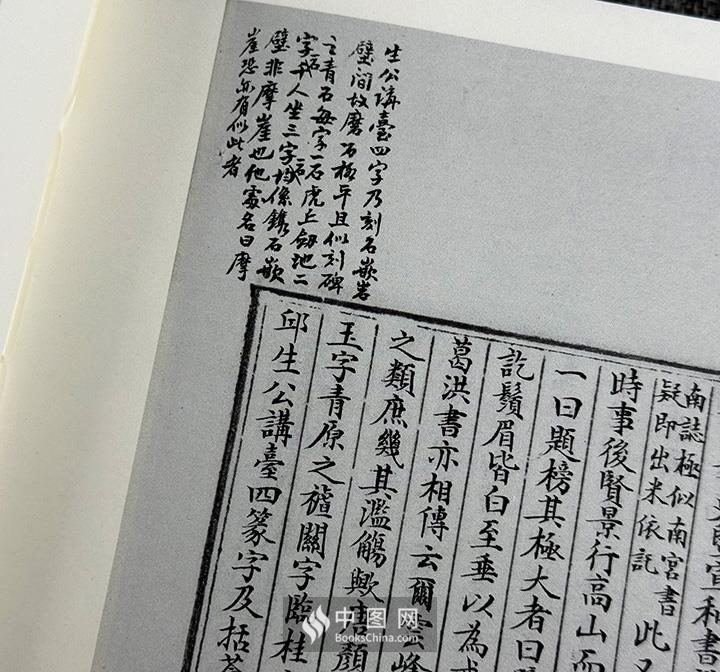 生公講臺四字乃刻石嵌岩
壁間故磨石極平且似刻碑
之青石每字一石虎上劒池二
字 石 人坐三字一石均係鐫石嵌
壁非摩崖也他處名曰摩
崖恐亦有似此者
宣和書
南誌極似南宮書
疑即出米依託
此
時事後賢景行高山而
一曰題榜其極大者曰
訖鬚眉皆白至垂以為
葛洪書亦相傳云爾雲峰
之類庶幾其濫觴歟唐顏
玉字青原之 關字臨桂
邱生公講臺四篆字及括
中图网
BooksChina.com